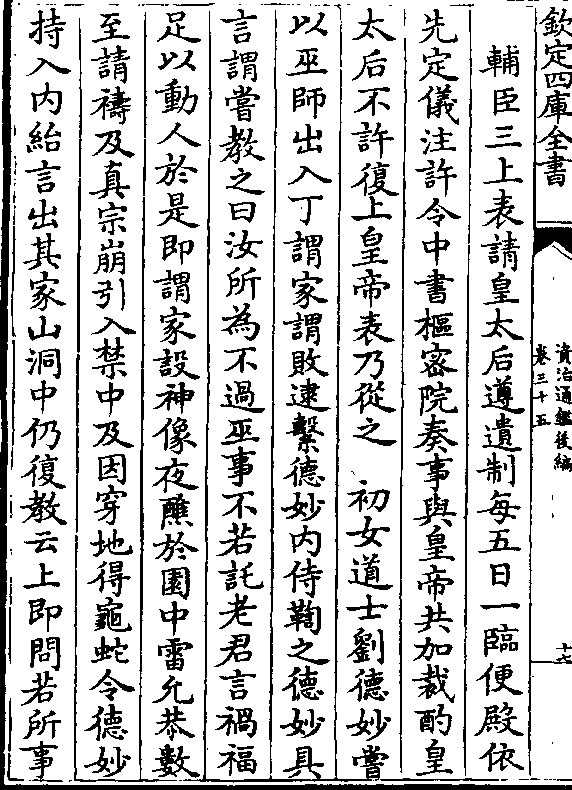 欽定四庫全書
資治通鑑後編
卷三十五
十六
輔臣三上表請皇太后遵遺制每五日一臨便殿依
先定儀注許令中書樞密院奏事與皇帝共加裁酌皇
太后不許復上皇帝表乃從之　初女道士劉德妙嘗
以巫師出入丁謂家謂敗逮繫德妙內侍鞫之德妙具
言謂嘗教之曰汝所為不過巫事不若託老君言禍福
足以動人於是即謂家設神像夜醮於園中雷允恭數
至請禱及真宗崩引入禁中及因穿地得龜蛇令德妙
持入內紿言出其家山洞中仍復教云上即問若所事